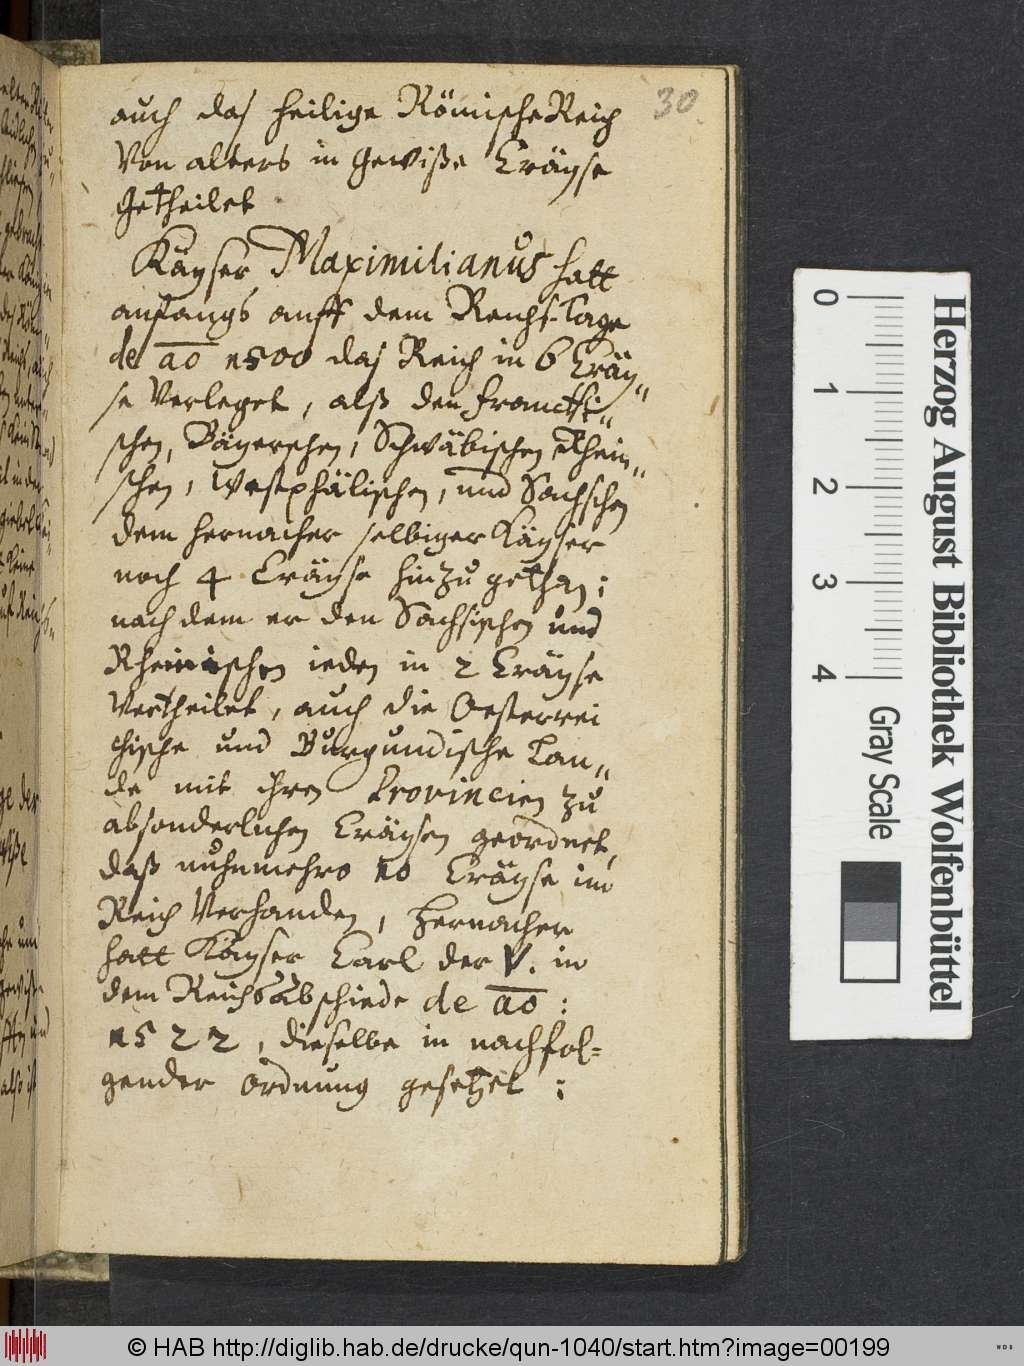 30
auch das heilige Römische Reich
Von alters in Gewiße Cräyse
Getheilet
Käyser Maximilianus hatt
anfangs auff dem Reichs-Tage
de ao 1500 das Reich in 6 Cräy„
se Verleget, alß den francki„
schen, Bäyerschen, Schwäbischen Rhein„
schen, Westphälischen, und Sachschen
dem hernacher selbiger Käyser
noch 4 Cräyse hinzu gethan;
nach dem er den Sachsischen und
Rheinischen ieden in 2 Cräyse
Vertheilet, auch die Oesterrei
chische und Burgundische Lan„
de mit ihren Provincien zu
absonderlichen Cräysen geordnet,
daß nuhnmehro 10 Cräyse im
Reich Verhanden, Hernacher
hatt Käyser Carl der V. in
dem Reichsabschiede de ao:
1522, dieselbe in nachfol=
gender ordnung gesetzet:
Herzog August Bibliothek Wolfenbüttel
0 1 2 3 4
Gray Scale
© HAB http://diglib.hab.de/drucke/qun-1040/start.htm?image=00199